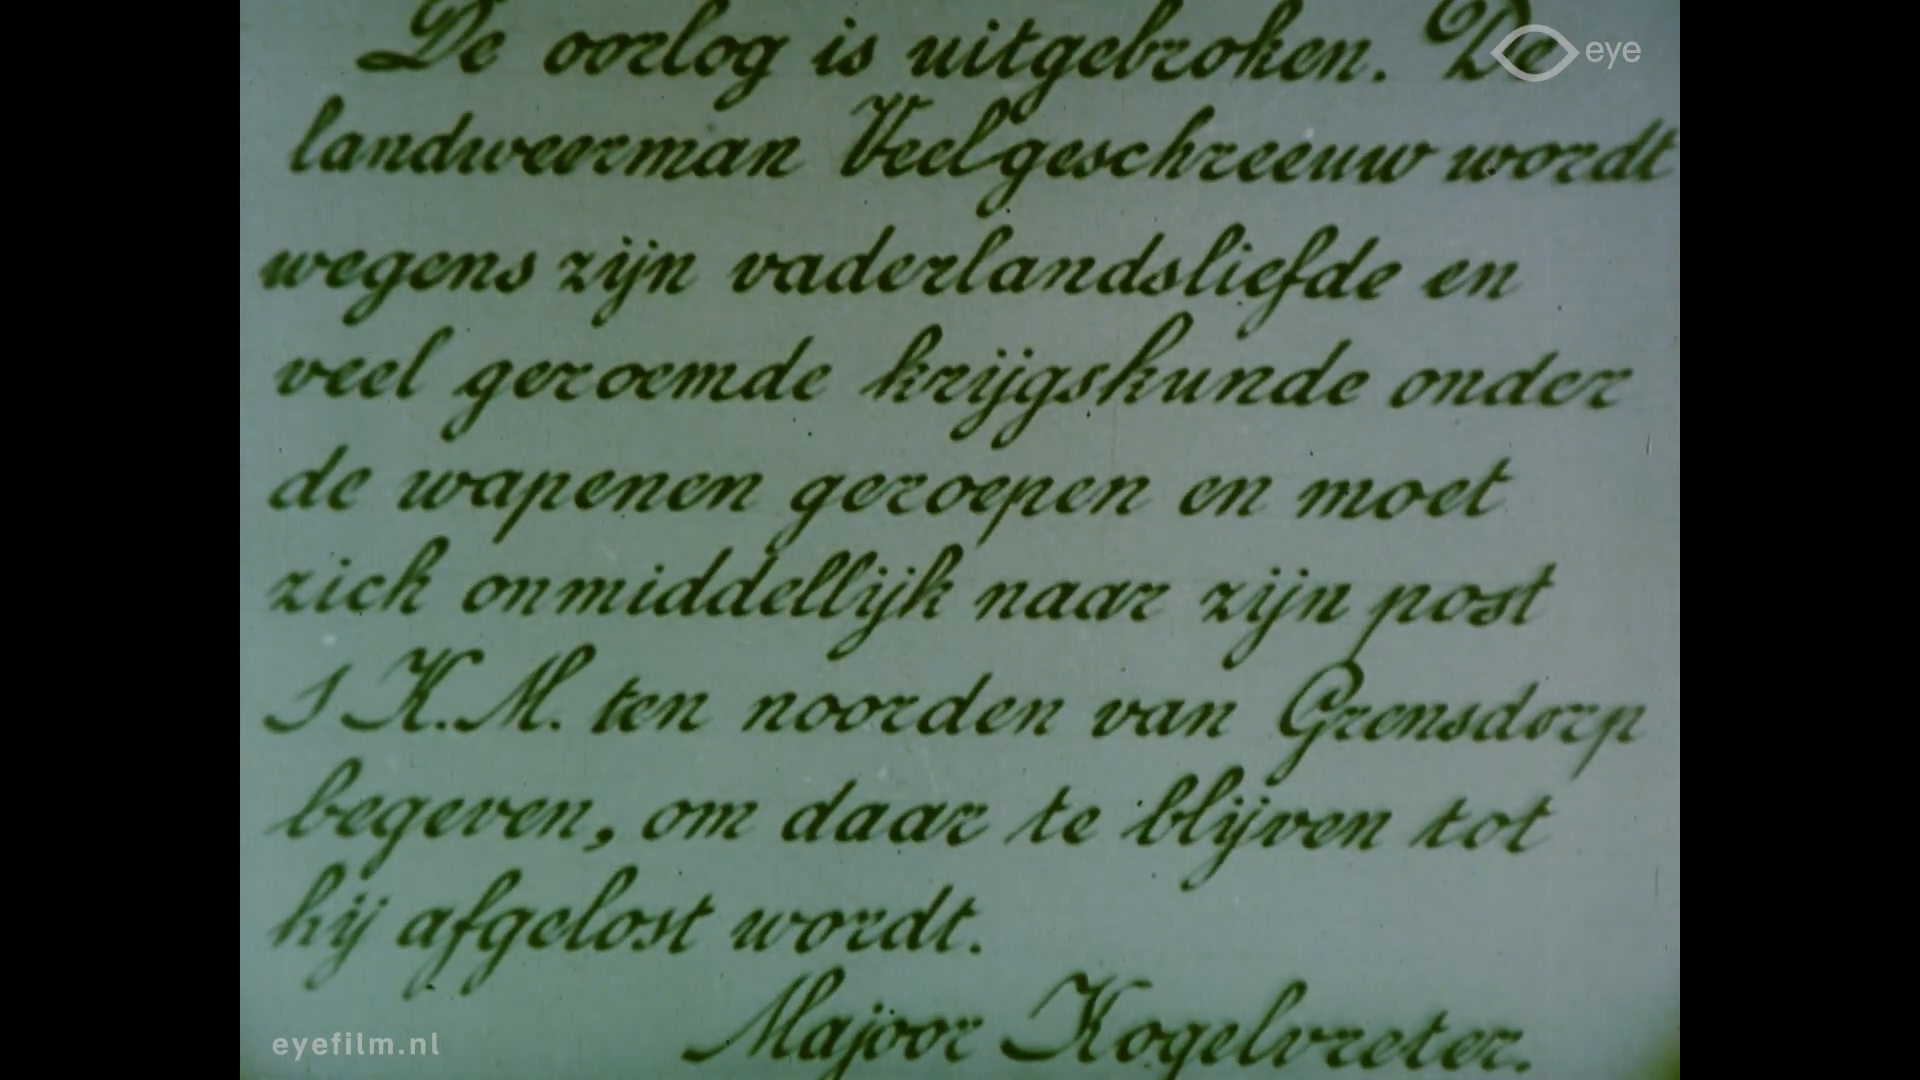 De oorlog is uitgebroken. De
eye
landweerman Veelgeschreeuw wordt
wegens zijn vaderlandsliefde en
veel geroemde krijgskunde onder
de wapenen geroepen en moet
zich onmiddellijk naar zijn post
1 K.M. ten noorden van Grensdorp
begeven, om daar te blijven tot
hij afgelost wordt.
Majoor Kogelvreter.
eyefilm.nl